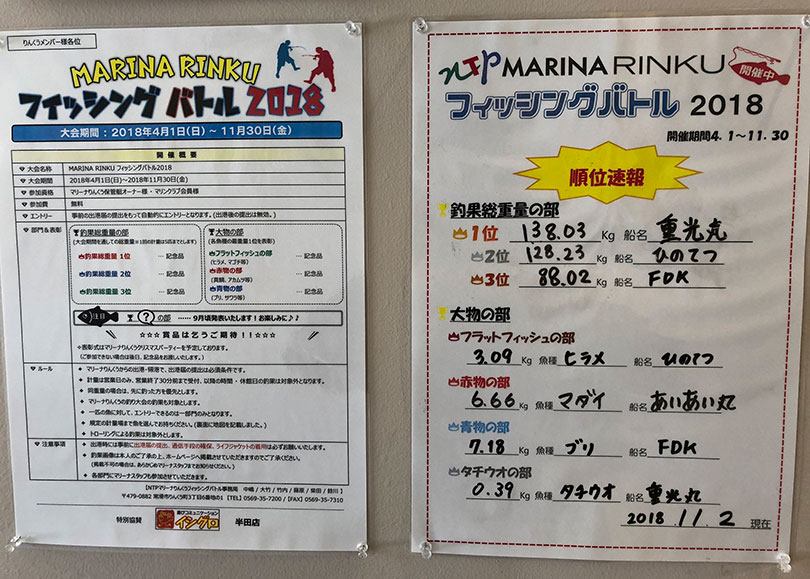 りんくうメンバー様各位
MARINA RINKU
フィッシング バトル 2018
大会期間：2018年4月1日(日) ~ 11月30日(金)
開 催 概 要
大会名称 MARINA RINKU フィッシングバトル2018
大会期間 2018年4月1日(日)～2018年11月30日(金)
参加資格 マリーナりんくう保管艇オーナー様・マリンクラブ会員様
参加費 無料
エントリー 事前の出港届の提出をもって自動的にエントリーとなります。(出港後の提出は無効。)
部門＆表彰
釣果総重量の部
(大会期間を通しての総重量※1回の計量は5匹までとします)
釣果総重量 1位 … 記念品
釣果総重量 2位 … 記念品
釣果総重量 3位 … 記念品
大物の部
(各魚種の最重量1位を表彰)
フラットフィッシュの部 … 記念品
(ヒラメ、マゴチ等)
赤物の部 … 記念品
(真鯛、アカムツ等)
青物の部 … 記念品
(ブリ、サワラ等)
注目 ? の部 …… 9月頃発表いたします！お楽しみに♪♪
☆☆☆ 賞品は乞うご期待！！☆☆☆
※表彰式はマリーナりんくうクリスマスパーティーを予定しております。
(ご参加できない場合は後日、記念品をお渡しいたします。)
ルール
マリーナりんくうからの出港・帰港で、出港届の提出は必須条件です。
計量は営業日のみ、営業終了30分前まで受付、以降の時間・休館日の釣果は対象外となります。
同重量の場合は、先に釣った方を優先とします。
マリーナりんくうの釣り大会の釣果も対象とします。
一匹の魚に対して、エントリーできるのは一部門のみとなります。
規定の計量場まで魚を運んでお持ちください。(裏面に地図を記載しました。)
トローリングによる釣果は対象外とします。
注意事項
出港時には事前に出港届の提出、通信手段の確保、ライフジャケットの着用は必ずお願いいたします。
釣果画像は本人のご了承の上、ホームページへ掲載させていただきますのでご了承ください。
(掲載不可の場合は、あらかじめマリーナスタッフまでお知らせください。)
各部門にマリーナスタッフも参加させていただきます。
【NTPマリーナりんくうフィッシングバトル事務局 中嶋 / 大竹 / 竹内 / 藤原 / 柴田 / 鈴川 】
〒479-0882 常滑市りんくう町3丁目6番地の1 【TEL】0569-35-7200 / 【FAX】0569-35-7310
特別協賛 喜びコミュニケーション イシグロ 半田店
NTP MARINA RINKU 開催中
フィッシングバトル 2018
開催期間4. 1～11. 30
順位速報
釣果総重量の部
1位 138.03 Kg 船名 重光丸
2位 128.23 Kg 船名 ひのてつ
3位 88.02 Kg 船名 FDK
大物の部
フラットフィッシュの部
3.09 Kg 魚種 ヒラメ 船名 ひのてつ
赤物の部
6.66 Kg 魚種 マダイ 船名 あいあい丸
青物の部
7.18 Kg 魚種 ブリ 船名 FDK
タチウオの部
0.39 Kg 魚種 タチウオ 船名 重光丸
2018 .11. 2 現在